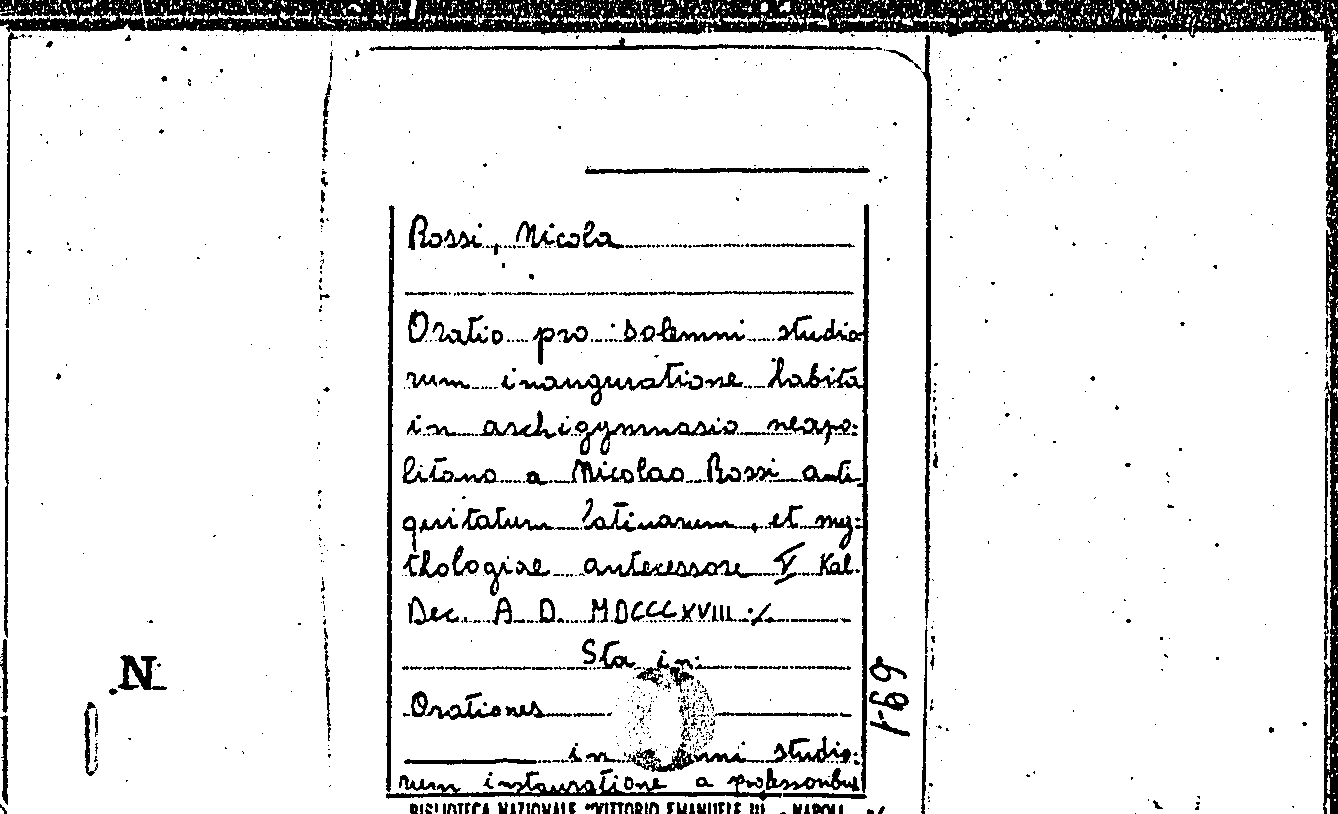 Rossi, Nicola
Oratio pro solemni studio-
rum inauguratione habita
in archigymnasio neapo-
litano a Nicolao Rossi anti-
quitatum latinarum, et my-
thologiae antecessore V Kal.
Dec. A D. MDCCCXVIII ./.
Sta in:
Orationes
in studio-
rum instauratione a professoribus
BIBLIOTECA NAZIONALE "VITTORIO EMANUELE III" - NAPOLI
69-1
N